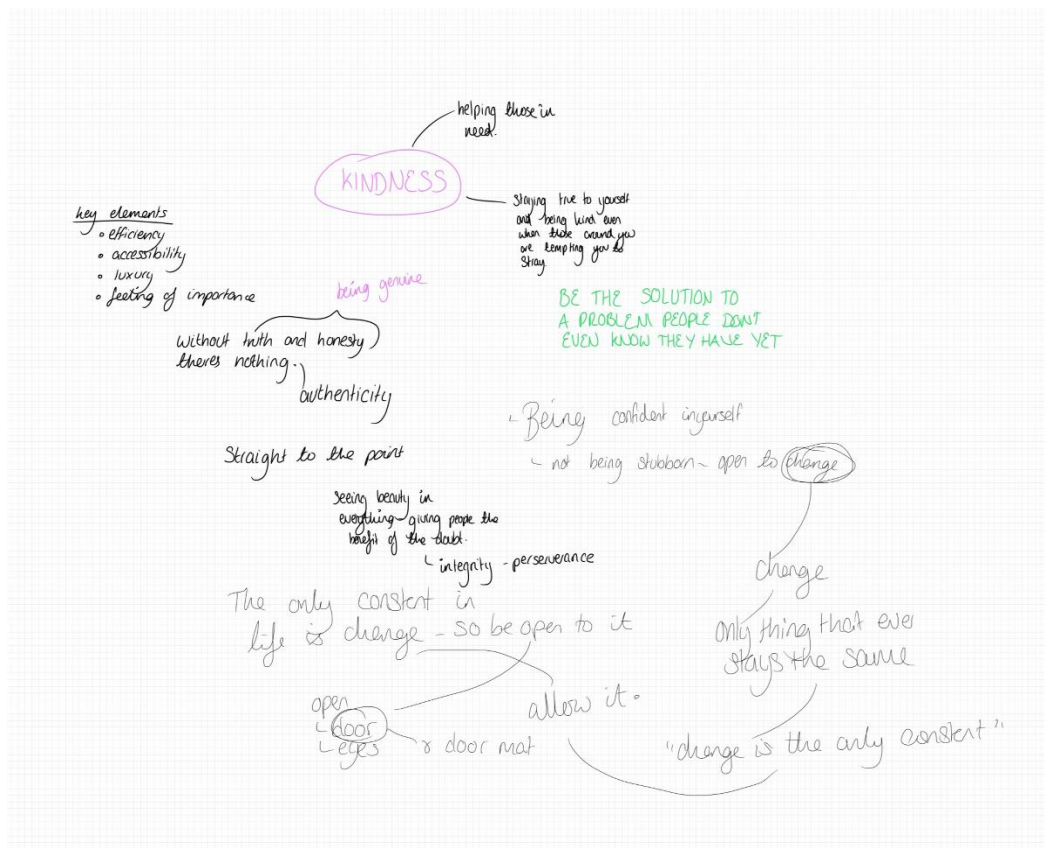 helping those in
need.
KINDNESS
Staying true to yourself
and being kind even
when those around you
are tempting you to
stray
key elements
• efficiency
• accessibility
• luxury
• feeling of importance
being genuine
Without truth and honesty
theres nothing.
authenticity
BE THE SOLUTION TO
A PROBLEM PEOPLE DONT
EVEN KNOW THEY HAVE YET
Being confident inyourself
not being stubborn - open to change
Straight to the point
Seeing beauty in
everything - giving people the
benefit of the doubt.
integrity - perserverance
change
only thing that ever
stays the same
"change is the only constent"
The only constent in
life is change - so be open to it
allow it.
open
door
eyes
door mat